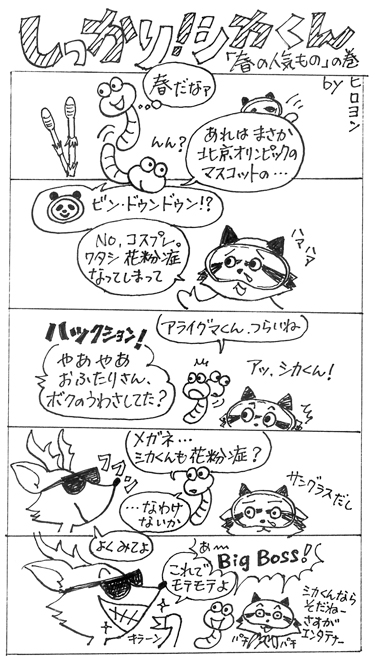 しっかり!シカくん
「春の人気もの」の巻
by ヒロヨン
春だなァ
んん?
あれは まさか
北京オリンピックの
マスコットの…
ビン・ドゥンドゥン!?
No,コスプレ。
ワタシ 花粉症
なってしまって
ハァ ハァ
ハックション!
アライグマくん、つらいね
やあやあ
おふたりさん、
ボクのうわさしてた?
アッ、シカくん!
メガネ…
シカくんも 花粉症?
…なわけ
ないか
サングラスだし
よくみてよ
これで
モテモテよ
キラーン
あ〜
Big Boss!
シカくんなら
そだねー
さすが
エンタテナー
パチ パチ